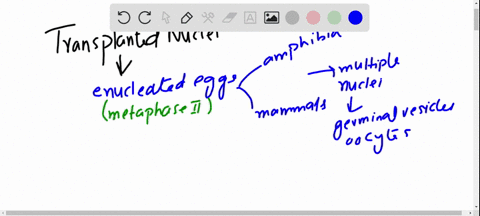 Transplanted Nuclei
enucleated eggs
(metaphase II)
amphibia
mammals
→ multiple
nuclei
germinal vesicles
oocytes